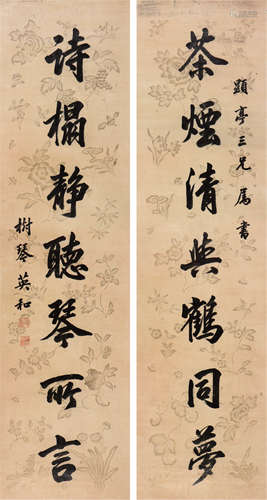 顕亭三兄属書
茶煙清與鶴同夢
詩榻静聽琴所言
樹琴英和